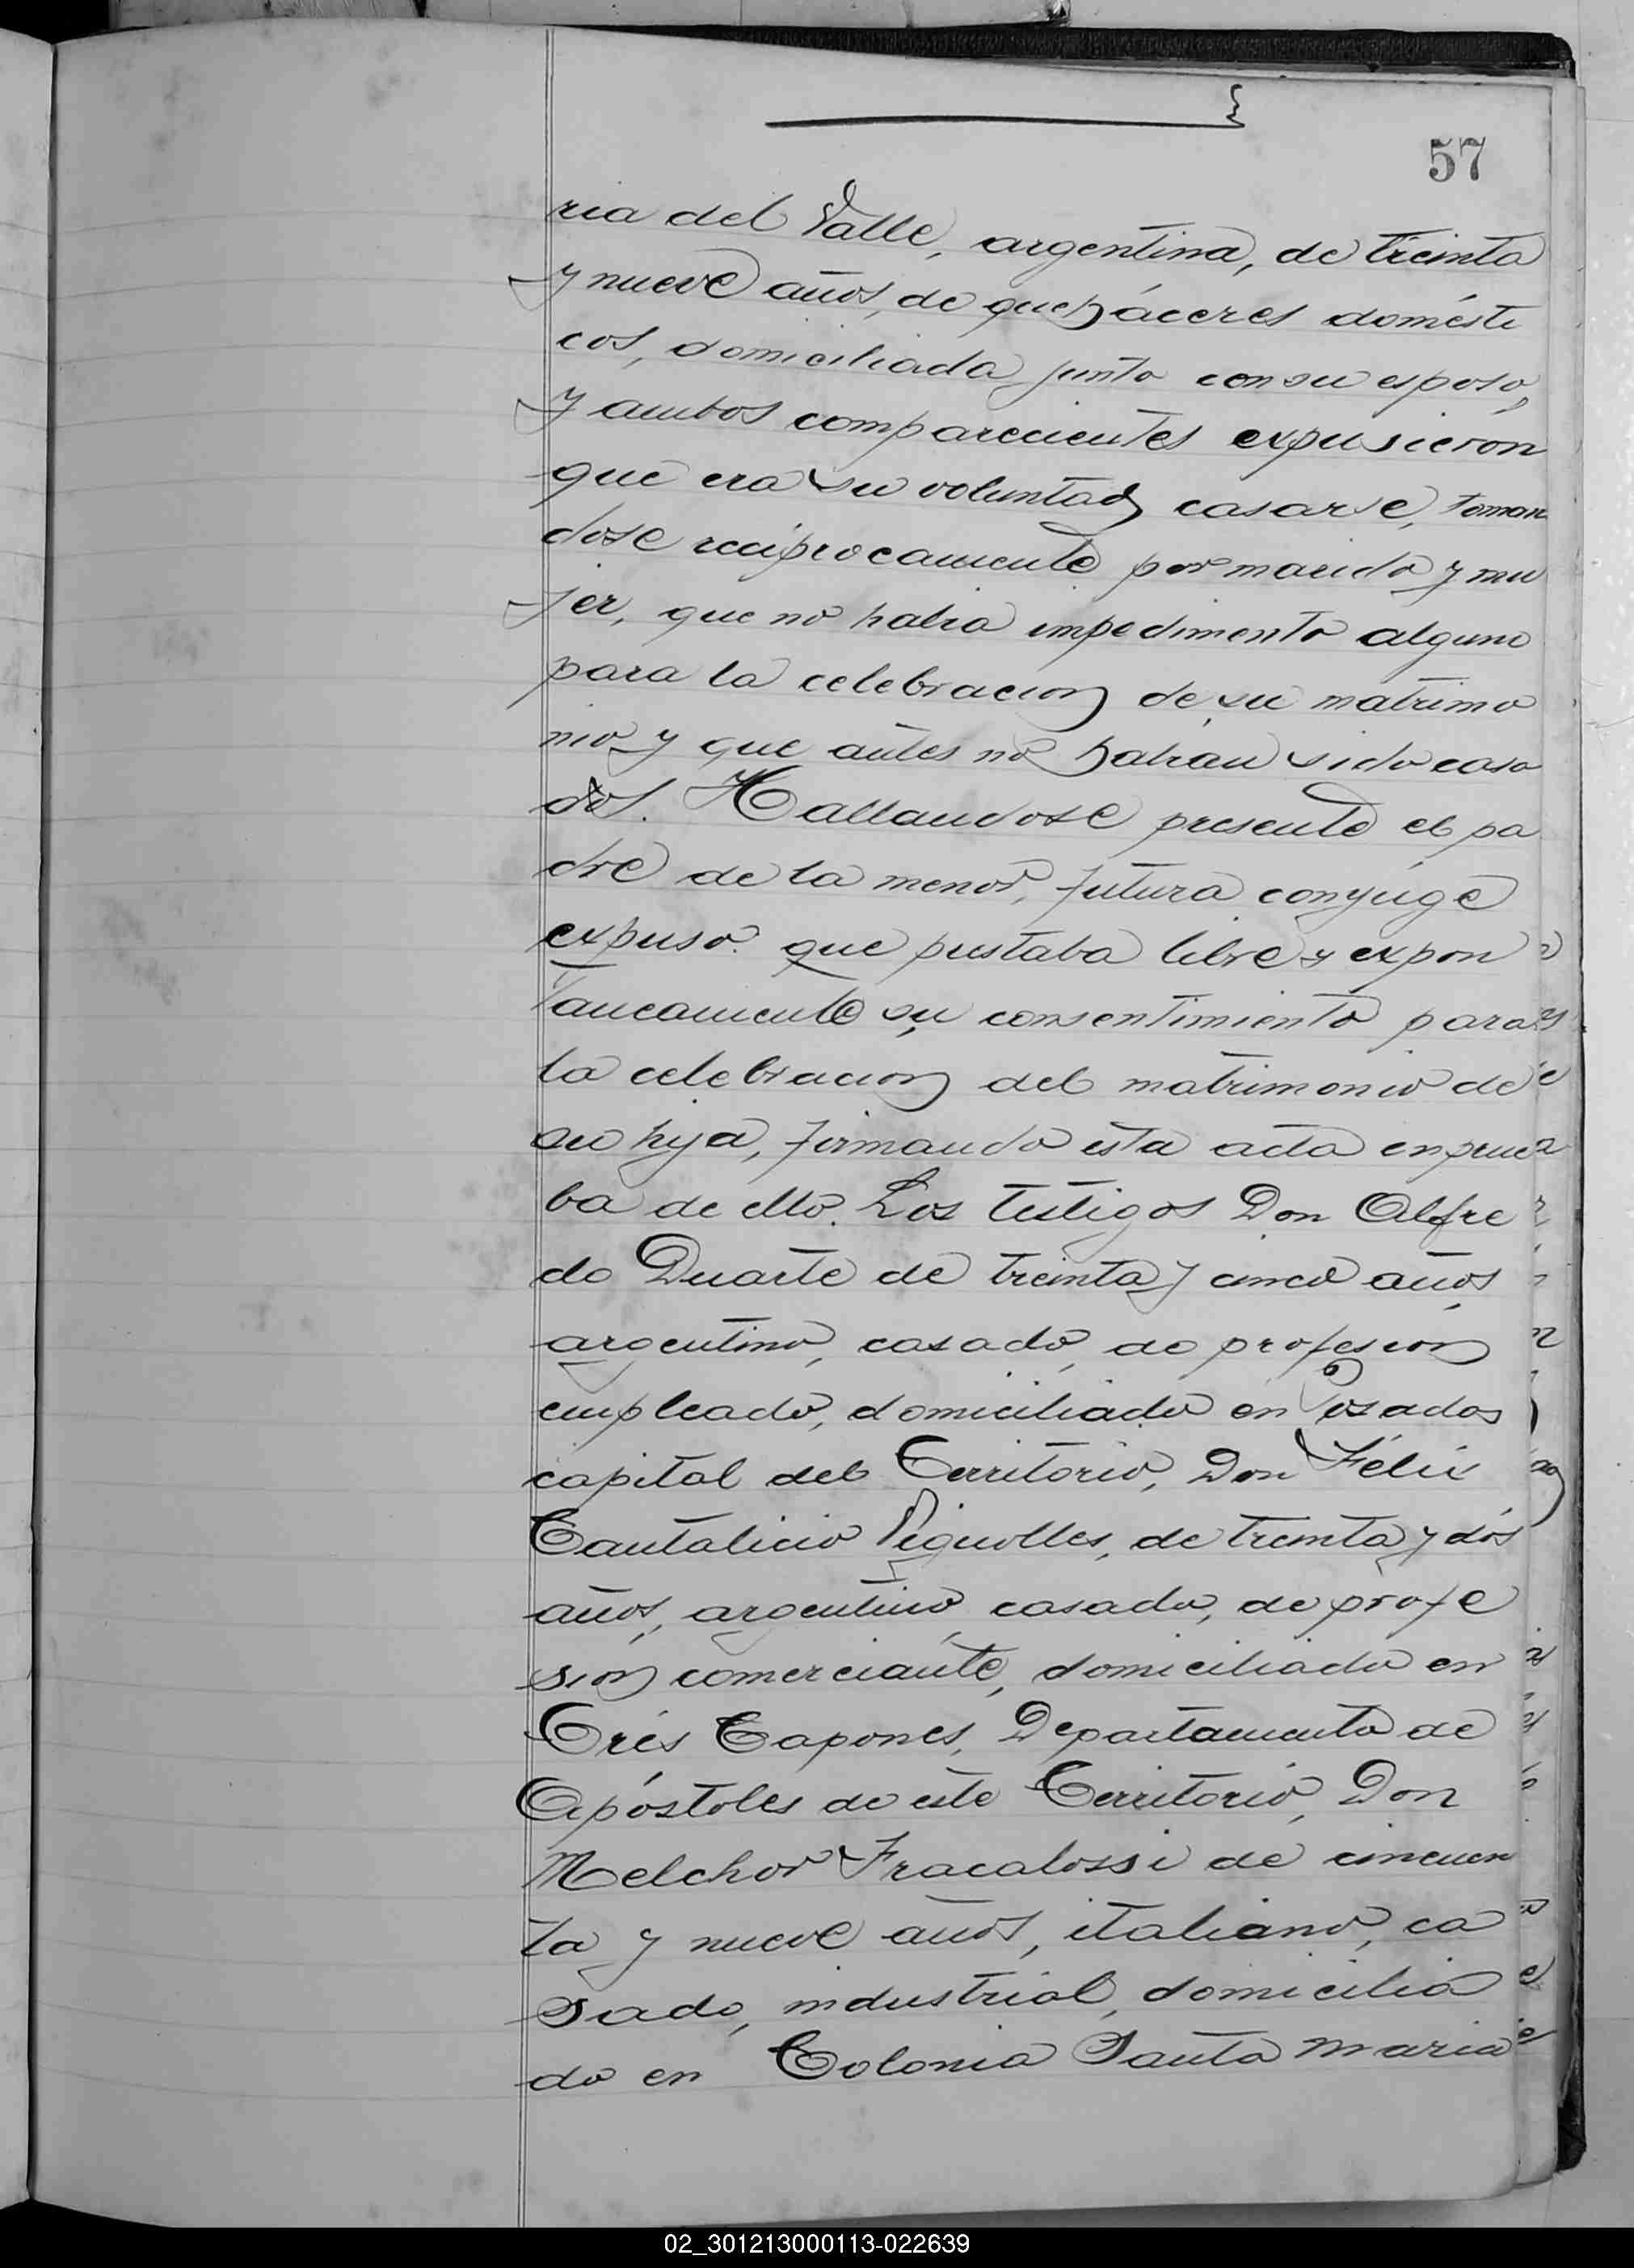 57
ria del Valle, argentina, de treinta
y nueve años, de quehaceres domésti
cos, domiciliada junto con su esposo,
y ambos comparecientes expusieron
que era su voluntad casarse, toman
dose reciprocamente por marido y mu
jer, que no habia impedimento alguno
para la celebracion de su matrimo
nio y que antes no habian sido casa
dos. Hallandose presente el pa
dre de la menor, futura conyuge
expuso: que prestaba libre y expon
taneamente su consentimiento para
la celebracion del matrimonio de
su hija, firmando esta acta en prue
ba de ello. Los testigos Don Alfre
do Duarte de treinta y cinco años
argentino, casado, de profesion
empleado, domiciliado en Posadas
capital del Territorio, Don Félix
Cantalicio Piquolles, de treinta y dos
años, argentino, casado, de profe
sion comerciante, domiciliado en
Tres Capones, Departamento de
Apóstoles de este Territorio, Don
Melchor Fracalossi de cincuen
ta y nueve años, italiano, ca
sado, industrial, domicilia
do en Colonia Santa Maria
02_301213000113-022639